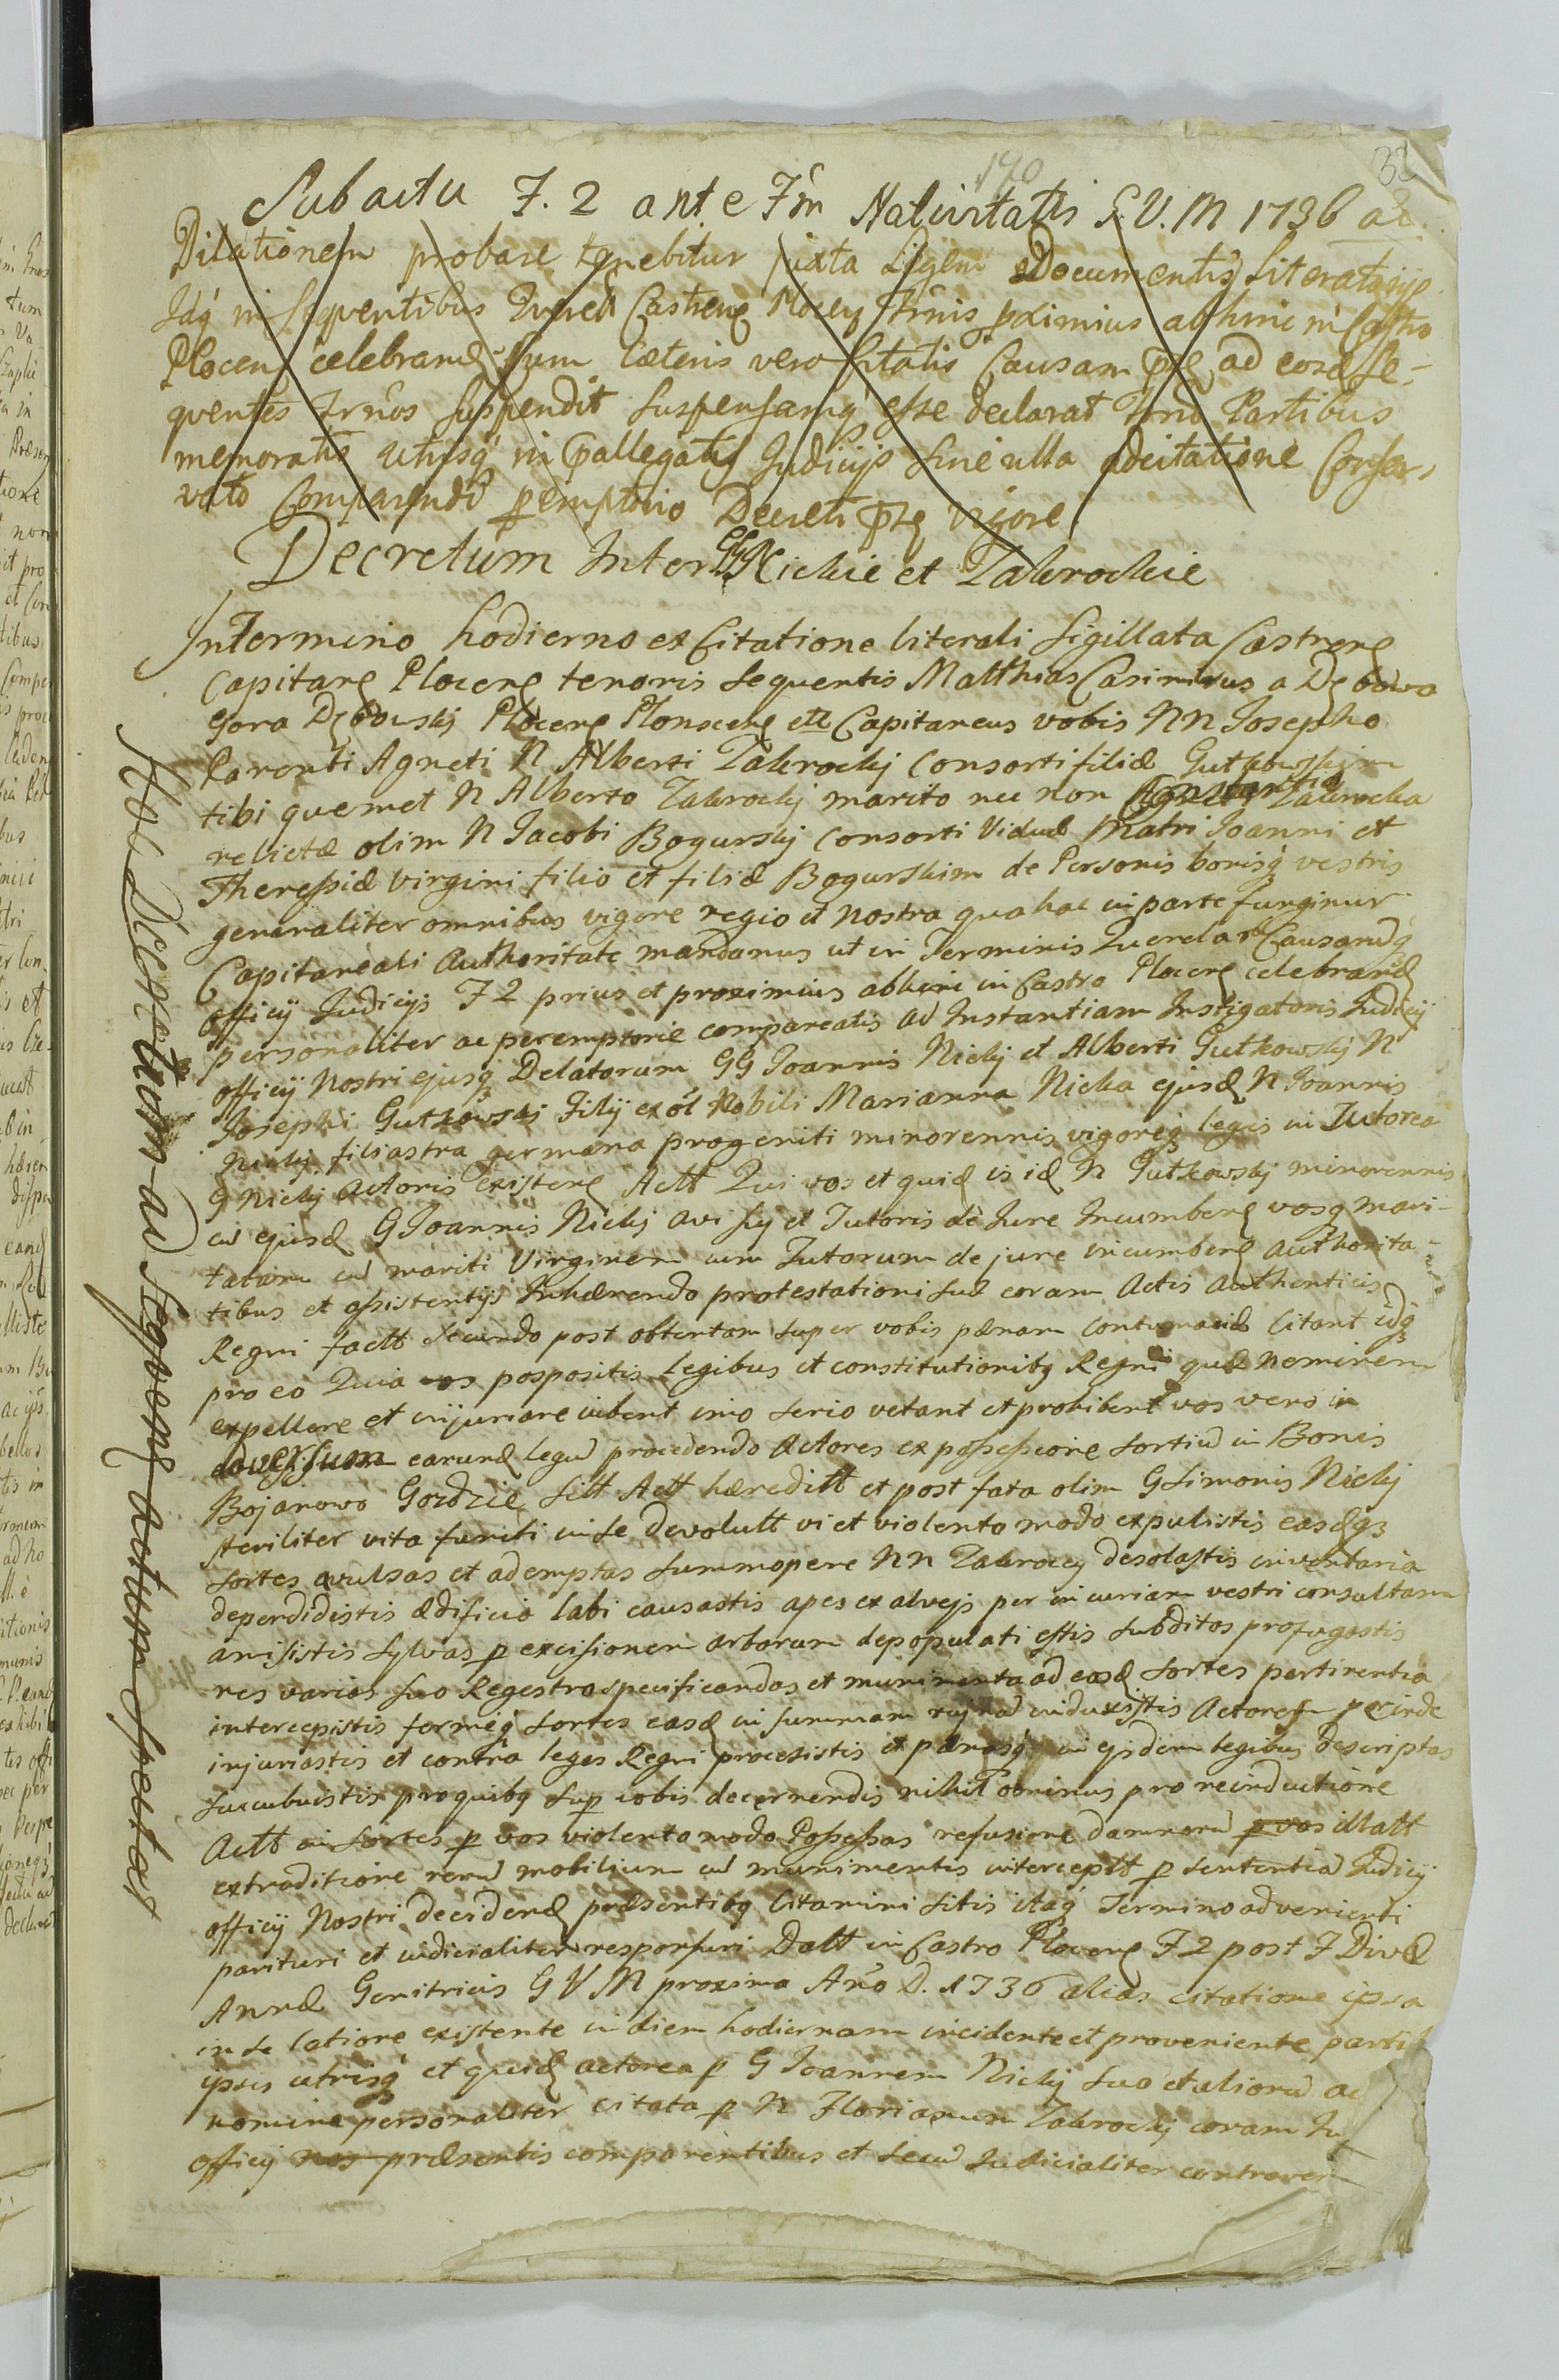 190
32
Sub actu F. 2 ante Fm Nativitatis G. V. M 1736 ao
Dilationem probare tenebitur juxta Legem Documentis Literatorijs
Idq in sequentibus Quered Castreng Plocen Trmis proximius abhinc in Castro
Plocen celebrand. Cum cæteris vero Citatis Causam pte ad eosd se-
quentes Trnos suspendit suspensamq esse declarat Trno Partibus
memoratis utrisq in pallegatis Judicijs sine ulla adcitatione Conser-
vato Comparendi peremptorio Decreti pte vigore
Decretum Inter GG Nickie et Zakrockie
In Termino hodierno ex Citatione literali Sigillata Castreng
Capitang Ploceng tenoris sequentis Matthias Casimirus a Dębowa
Gora Dębowskj Ploceng Plonsceng ett Capitaneus vobis NN Josepho
Parenti Agneti N Alberti Zakrockj Consorti filiæ Gutkowskim
tibi quemet N Alberto Zakrockj marito nec non Constantia Zakrocka
relictæ olim N Jacobi Bogurskj Consorti Viduæ Matri Joanni et
Theressiæ Virgini filio et filiæ Bogurskim de Personis bonisq vestris
generaliter omnibus vigore regio et nostra qua hac in parte fungimur
Capitaneali Authoritate mandamus ut in Terminis Querelar Causarumq
officij Judicijs F 2 prius et proximius abhinc in Castro Ploceng celebrand
personaliter ac peremptorie compareatis ad Instantiam Instigatoris Judicij
officij Nostri ejusq Delatorum GG Joannis Nickj et Alberti Gutkowskj N
Josephi Gutkowskj Filij ex ol Nobili Marianna Nicka ejusd N Joannis
Nickj filiastra germana progeniti minorennis vigoreq legis in Tutorea
G Nickj Actoris existeng Actt Qui vos et quid is id N Gutkowskj minorennis
cu ejusd G Joannis Nickj avi sui et Tutoris de Jure Incumbeng vosq mari-
tatam cu mariti Virginem cum Tutorum de jure incumbeng authorita-
tibus et assistentijs Inhærendo protestationi suæ coram Actis Authenticis
Regni factt secundo post obtentam super vobis pænam contumaciæ Citant idq
pro eo Quia vos pospositis Legibus et constitutionibq Regni quæ neminem
expellere et injuriare iubent imo serio vetant et prohibent vos vero in
adversum earund legu procedendo Actores ex possessione sortiu in Bonis
Bojanowo Gozdzie sitt Actt hæreditt et post fata olim G Simonis Nickj
steriliter vita functi in se devolutt vi et violento modo expulistis easdqз
sortes avulsas et ademptas summopere NN Zakroccy desolastis inventaria
deperdidistis ædificia labi causastis apes ex alvejs per incuriam vestri consultam
amisistis sylvas p excisionem arborum depopulati estis subditos profugastis
res varias suo Regestro specificandas et munimenta ad easd sortes pertinentia
intercepistis fermeq sortes easd in summam rujna induxistis Actorem perinde
injuriastis et contra leges Regni procesistis et pænasq in ejsdem legibus descriptas
succubuistis pro quibq sup vobis decernendis nihilominus pro reinductione
Actt in sortes p vos violento modo Possessas refusione damnoru p vos illatt
extraditione reru mobilium cu munimentis interceptt p sententia Judicij
officij Nostri decidend præsentibq Citamini sitis itaq Termino advenienti
parituri et iudicialiter responsuri Datt in Castro Ploceng F 2 post F Divæ
Annæ Genitricis G V M proxima Anno D. 1736 alias citatione ipsa
in se latiore existente in diem hodiernam incidente et proveniente
ipsis utrisq et quid actorea p G Joannem Nickj suo et alioru
nomine personaliter citata p N Florianum Zakrockj coram
officij nos præsentis comparentibus et secu Judicialiter
Hoc Decretum ad sequens actum spectat